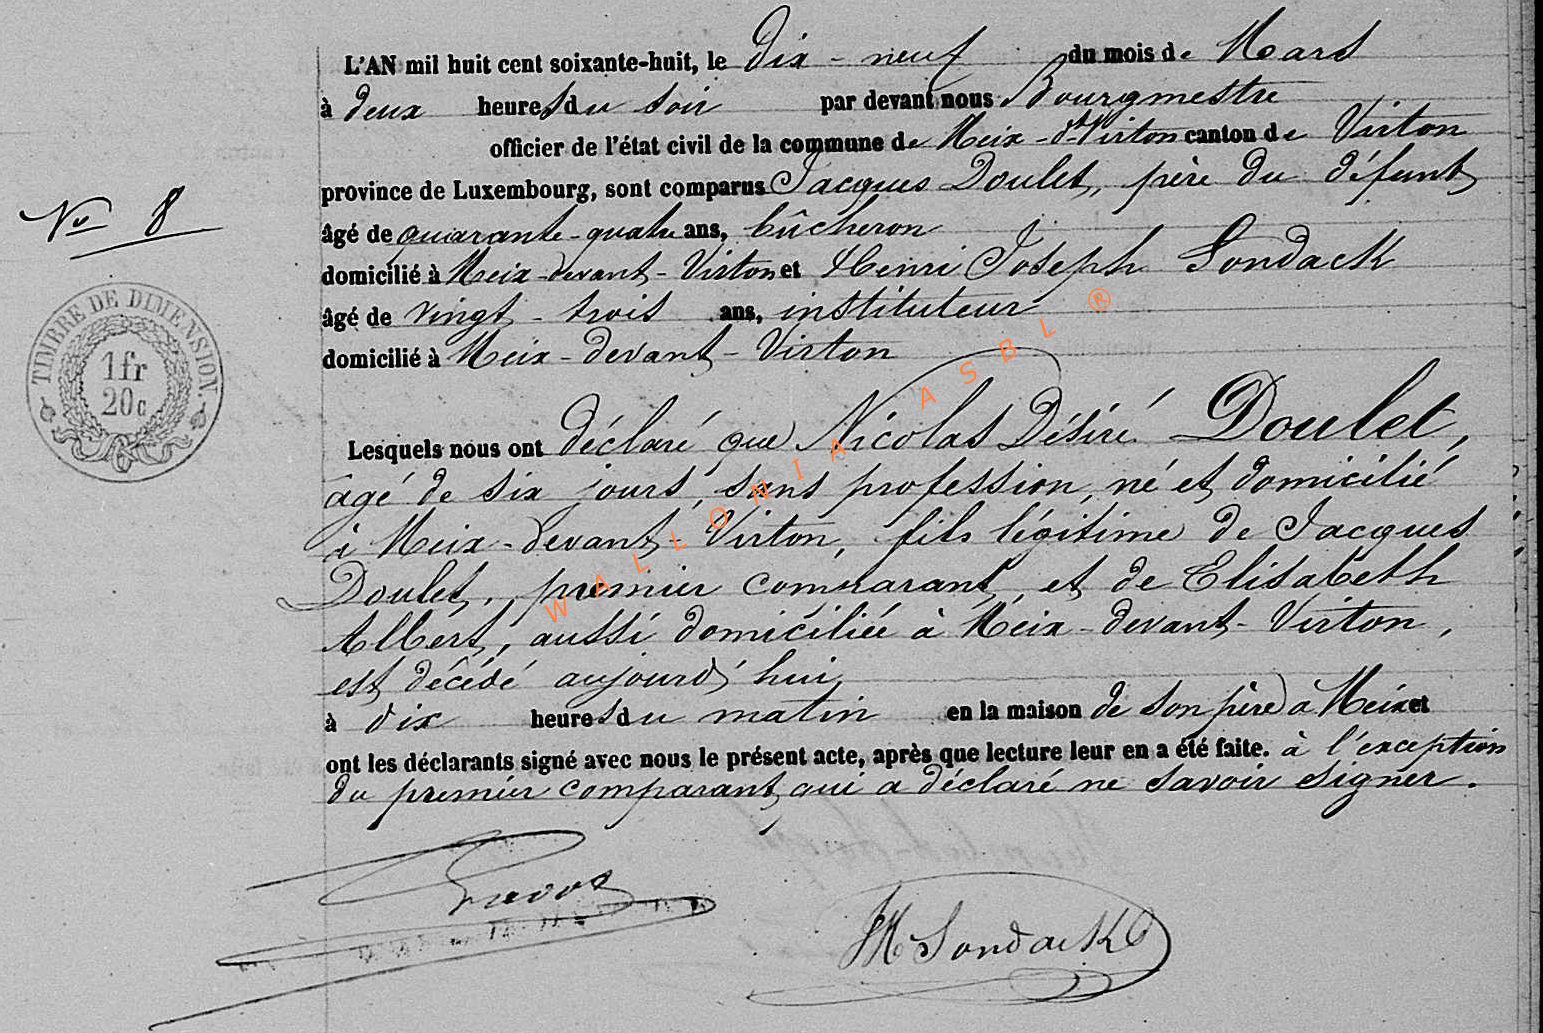 L'AN mil huit cent soixante-huit, le Dix-neuf du mois de Mars
à deux heures du soir par devant nous Bourgmestre
officier de l'état civil de la commune de Meix-dt-Virton canton de Virton
province de Luxembourg, sont comparus Jacques Doulet, père du défunt
No 8
âgé de quarante-quatre ans, bûcheron
domicilié à Meix-devant-Virton et Henri Joseph Sondack
âgé de vingt-trois ans, instituteur
domicilié à Meix-devant-Virton
TIMBRE DE DIMENSION.
1fr
20c
WALLONIA ASBL ®
Lesquels nous ont déclaré que Nicolas Désiré Doulet,
âgé de six jours, sans profession, né et domicilié
à Meix-devant-Virton, fils légitime de Jacques
Doulet, premier comparant, et de Elisabeth
Albert, aussi domiciliée à Meix-devant-Virton,
est décédé aujourd'hui
à dix heures du matin en la maison de son père à Meix et
ont les déclarants signé avec nous le présent acte, après que lecture leur en a été faite. à l'exception
du premier comparant qui a déclaré ne savoir signer.
HSondack